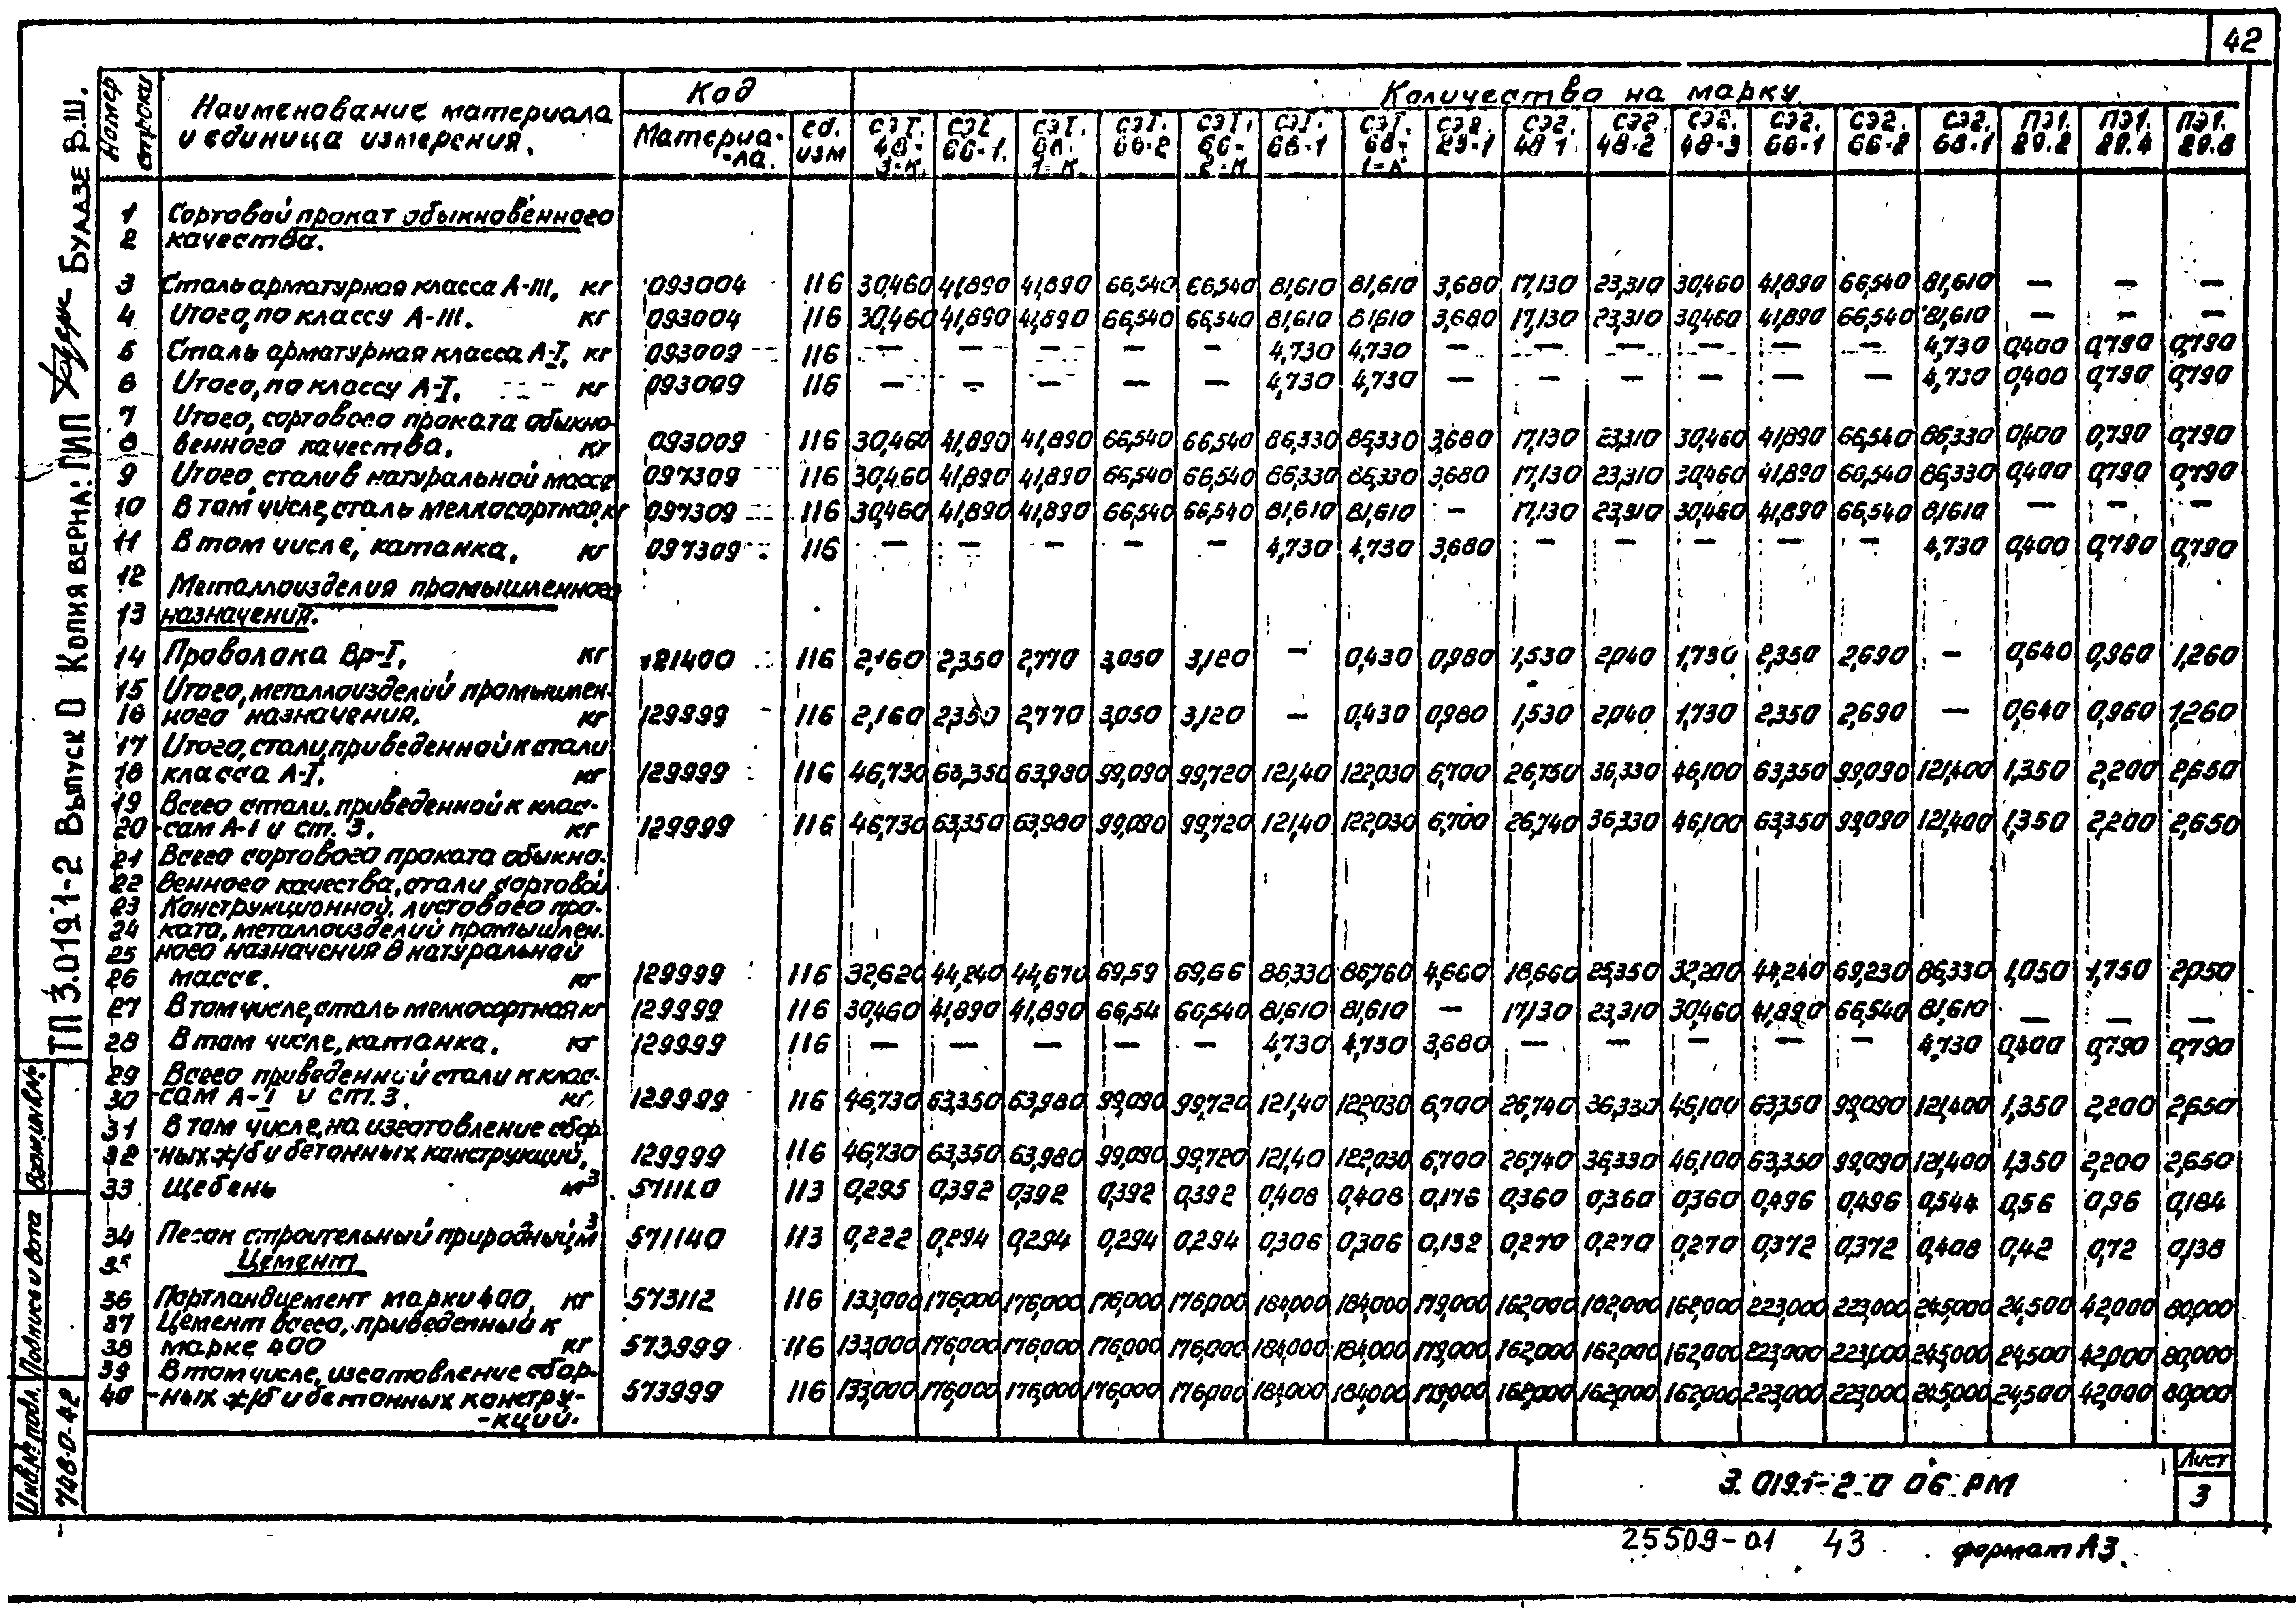 42
Номер строки
Наименование материала и единица измерения.
Код
Материа-ла.
ед. изм
Количество на марку.
СЭ1. 48-3-К. СЭ1 66-1. СЭ1. 66-1-К. СЭ1. 66-2 СЭ1. 66-2-К СЭ1. 68-1 СЭ1. 68-1-К СЭ2. 29-1 СЭ2. 48 1. СЭ2 48-2 СЭ2. 48-3 СЭ2. 66-1 СЭ2. 66-2 СЭ2. 68-1 ПЭ1. 29.2 ПЭ1. 29.4 ПЭ1. 29.8
1 Сортовой прокат обыкновенного
2 качества.
3 Сталь арматурная класса А-III, кг 093004 116 30,460 41,890 41,890 66,540 66,540 81,610 81,610 3,680 17,130 23,310 30,460 41,890 66,540 81,610 — — —
4 Итого, по классу А-III. кг 093004 116 30,460 41,890 41,890 66,540 66,540 81,610 81,610 3,680 17,130 23,310 30,460 41,890 66,540 81,610 — — —
5 Сталь арматурная класса А-I, кг 093009 116 — — — — — 4,730 4,730 — — — — — — 4,730 0,400 0,790 0,790
6 Итого, по классу А-I. кг 093009 116 — — — — — 4,730 4,730 — — — — — — 4,730 0,400 0,790 0,790
7 Итого, сортового проката обыкно-
8 венного качества. кг 093009 116 30,460 41,890 41,890 66,540 66,540 86,330 86,330 3,680 17,130 23,310 30,460 41,890 66,540 86,330 0,400 0,790 0,790
9 Итого, стали в натуральной массе 097309 116 30,460 41,890 41,890 66,540 66,540 86,330 86,330 3,680 17,130 23,310 30,460 41,890 66,540 86,330 0,400 0,790 0,790
10 В том числе, сталь мелкосортная, кг 097309 116 30,460 41,890 41,890 66,540 66,540 81,610 81,610 — 17,130 23,310 30,460 41,890 66,540 81,610 — — —
11 В том числе, катанка, кг 097309 116 — — — — — 4,730 4,730 3,680 — — — — — 4,730 0,400 0,790 0,790
12 Металлоизделия промышленного
13 назначения.
14 Проволока Вр-I, кг 121400 116 2,160 2,350 2,770 3,050 3,120 — 0,430 0,980 1,530 2,040 1,730 2,350 2,690 — 0,640 0,960 1,260
15 Итого, металлоизделий промышлен-
16 ного назначения. кг 129999 116 2,160 2,350 2,770 3,050 3,120 — 0,430 0,980 1,530 2,040 1,730 2,350 2,690 — 0,640 0,960 1,260
17 Итого, стали, приведенной к стали
18 класса А-I. кг 129999 116 46,730 63,350 63,980 99,090 99,720 121,40 122,030 6,700 26,750 36,330 46,100 63,350 99,090 121,400 1,350 2,200 2,650
19 Всего стали, приведенной к клас-
20 -сам А-I и ст. 3. кг 129999 116 46,730 63,350 63,980 99,090 99,720 121,40 122,030 6,700 26,740 36,330 46,100 63,350 99,090 121,400 1,350 2,200 2,650
21 Всего сортового проката обыкно-
22 венного качества, стали сортовой
23 Конструкционной, листового про-
24 ката, металлоизделий промышлен-
25 ного назначения в натуральной
26 массе. кг 129999 116 32,620 44,240 44,670 69,59 69,66 86,330 86,760 4,660 18,660 25,350 32,200 44,240 69,230 86,330 1,050 1,750 2,050
27 В том числе, сталь мелкосортная кг 129999 116 30,460 41,890 41,890 66,54 66,540 81,610 81,610 — 17,130 23,310 30,460 41,890 66,540 81,610 — — —
28 В том числе, катанка. кг 129999 116 — — — — — 4,730 4,730 3,680 — — — — — 4,730 0,400 0,790 0,790
29 Всего приведенной стали к клас-
30 -сам А-I и ст. 3. кг, 129999 116 46,730 63,350 63,980 99,090 99,720 121,40 122,030 6,700 26,740 36,330 46,100 63,350 99,090 121,400 1,350 2,200 2,650
31 В том числе, на изготовление сбор
32 -ных ж/б и бетонных конструкций, 129999 116 46,730 63,350 63,980 99,090 99,720 121,40 122,030 6,700 26,740 36,330 46,100 63,350 99,090 121,400 1,350 2,200 2,650
33 Щебень м³ 571110 113 0,295 0,392 0,392 0,392 0,392 0,408 0,408 0,176 0,360 0,360 0,360 0,496 0,496 0,544 0,56 0,96 0,184
34 Песок строительный природный м³ 571140 113 0,222 0,294 0,294 0,294 0,294 0,306 0,306 0,132 0,270 0,270 0,270 0,372 0,372 0,408 0,42 0,72 0,138
35 Цемент
36 Портландцемент марки 400, кг 573112 116 133,000 176,000 176,000 176,000 176,000 184,000 184,000 179,000 162,000 162,000 162,000 223,000 223,000 245,000 24,500 42,000 80,000
37 Цемент всего, приведенный к
38 марке 400 кг 573999 116 133,000 176,000 176,000 176,000 176,000 184,000 184,000 179,000 162,000 162,000 162,000 223,000 223,000 245,000 24,500 42,000 80,000
39 В том числе, изготовление сбор-
40 -ных ж/б и бетонных констру- 573999 116 133,000 176,000 176,000 176,000 176,000 184,000 184,000 179,000 162,000 162,000 162,000 223,000 223,000 245,000 24,500 42,000 80,000
-кций.
3.019.1-2.0 06 РМ
Лист
3
25509-01 43 формат А3
ТП 3.019.1-2 Выпуск 0 Копия верна: ГИП Буадзе В.Ш.
Взам.инв.№
Подпись и дата
Инв.№ подл.
748-0-42